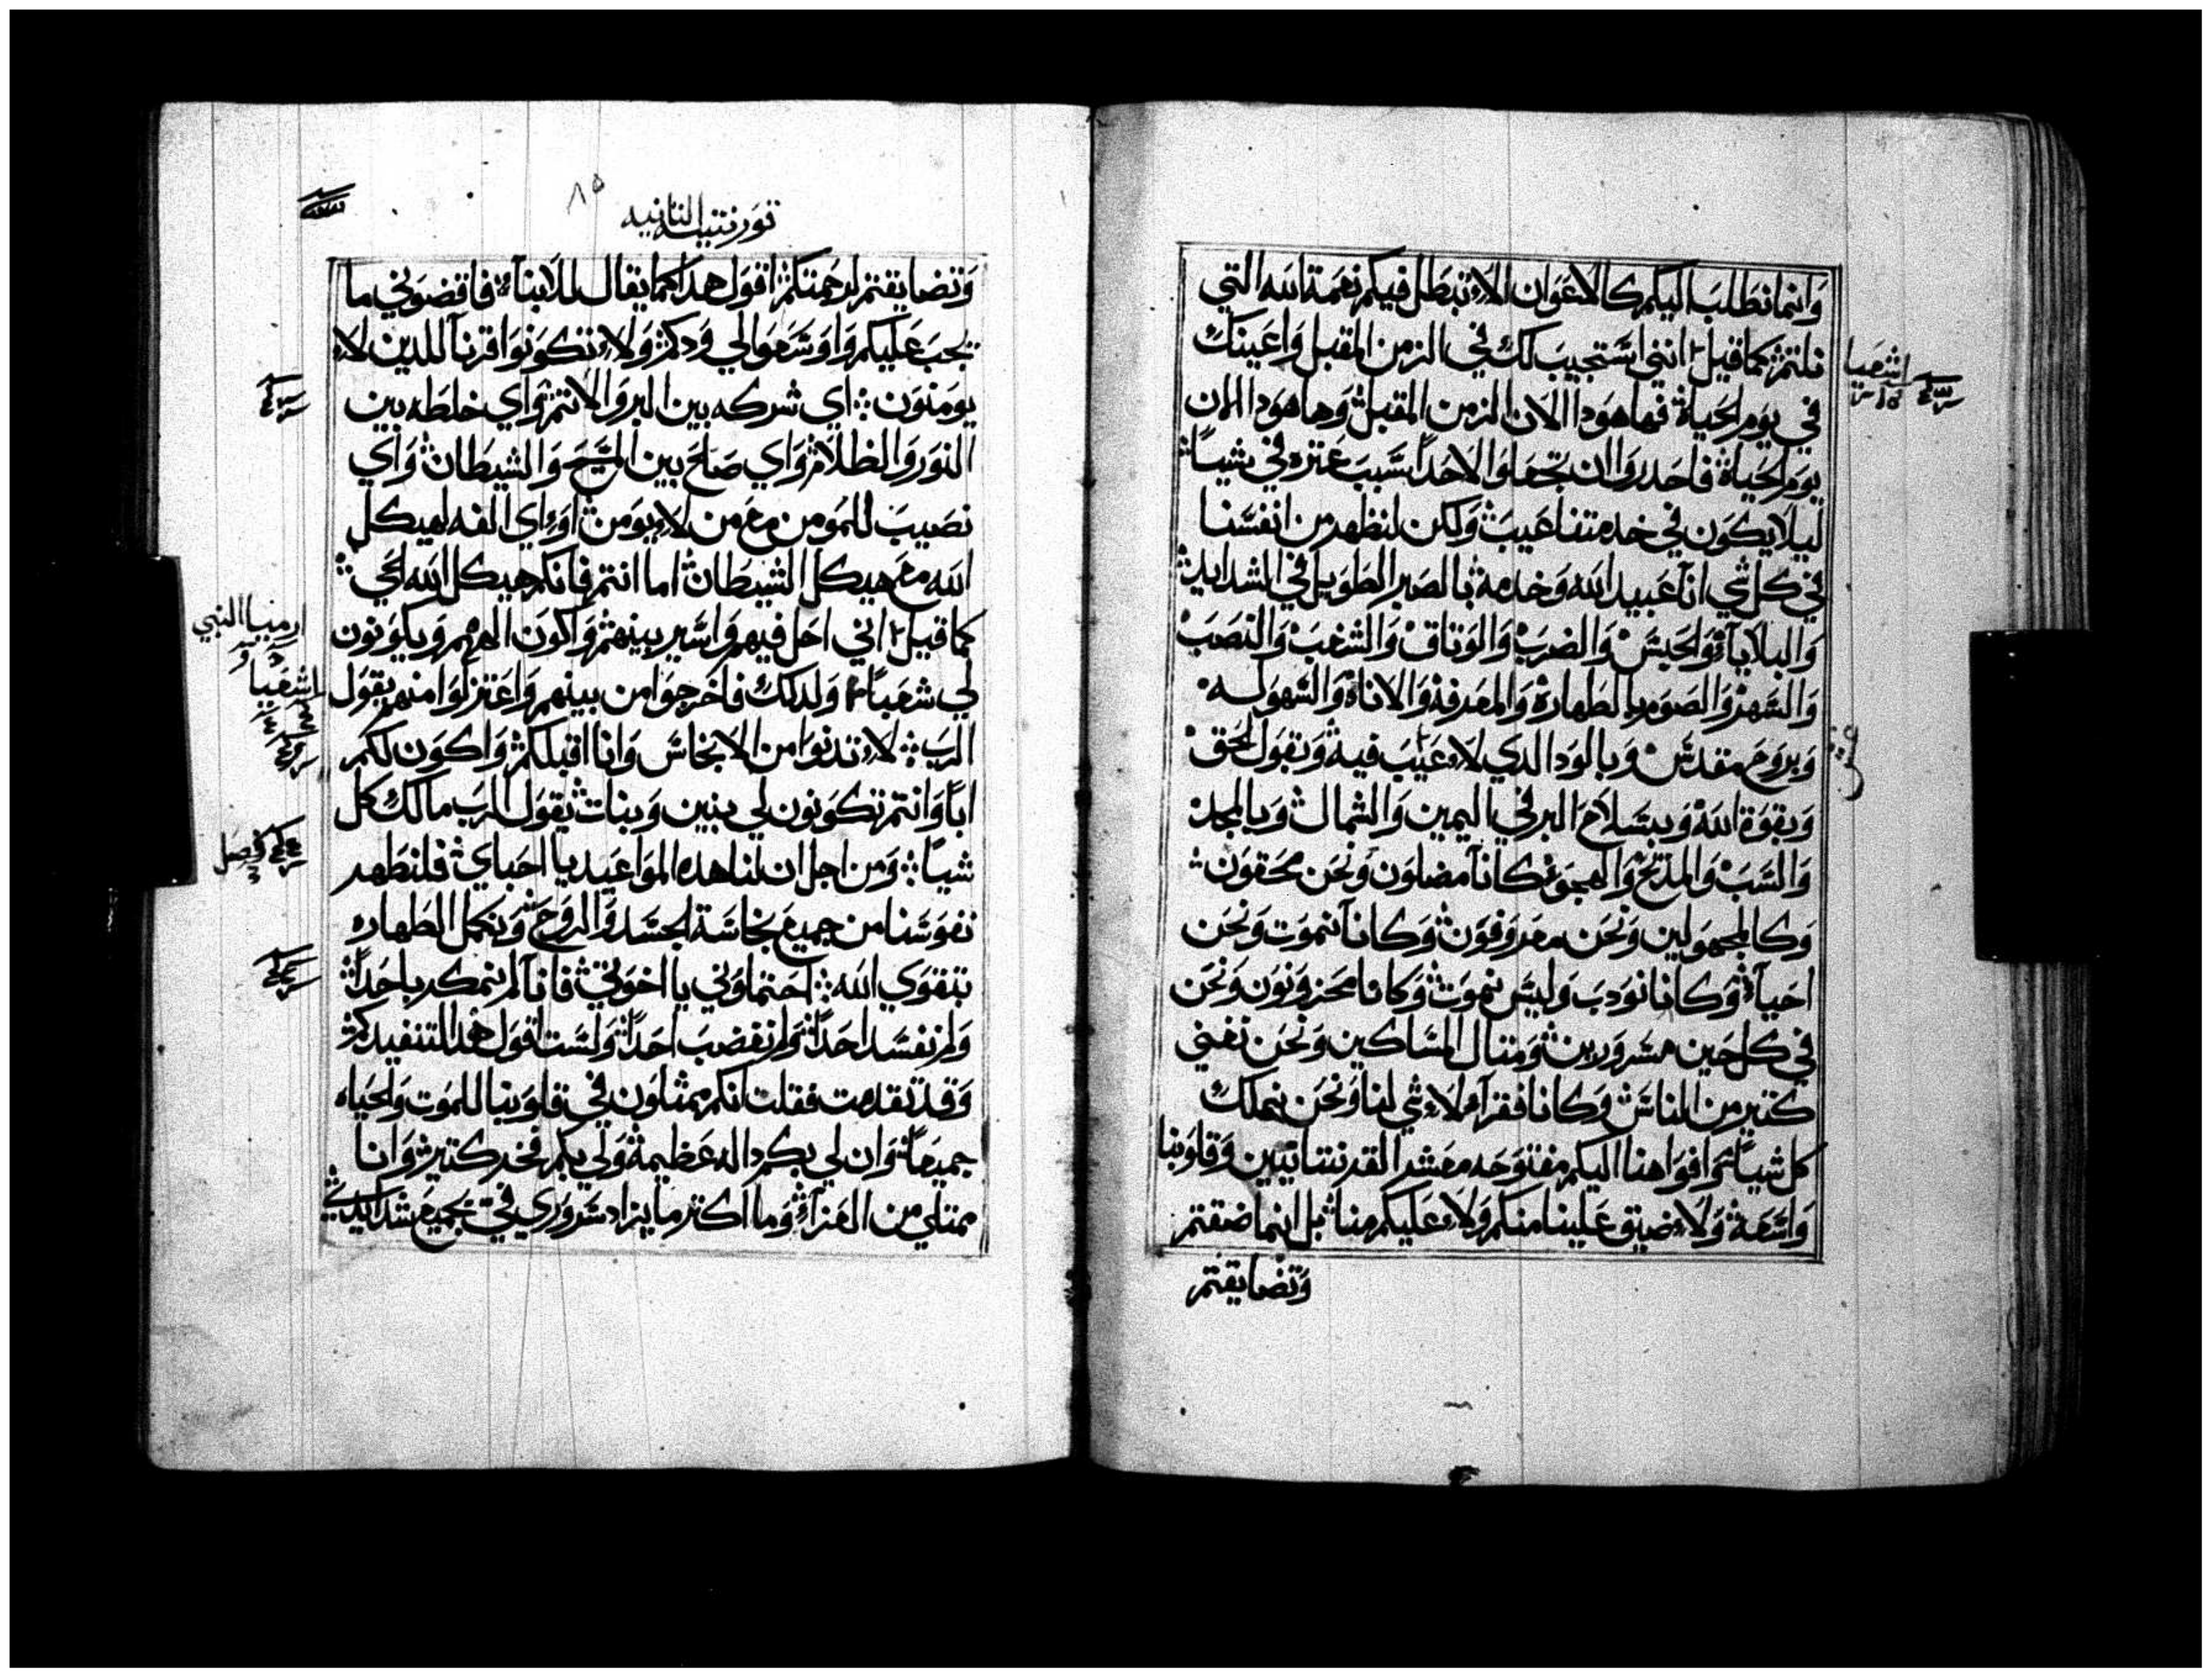 وانما نطلب اليكم كالاعوان الا تبطل فيكم نعمة الله التي
نلتم كما قيل انني استجيب لك في الزمن المقبل واعينك
اشعيا
في يوم الحياة فها هودا الان الزمن المقبل وها هودا الان
يوم الحياة فاحدروا ان تجعلوا لاحدا سبب عتره في شيا
ليلا يكون في خدمتنا عيب ولكن لنظهر من انفسنا
في كل شي انا عبيد الله وخدمه بالصبر الطويل في الشدايد
والبلايا والحبس والضرب والوتاق والشغب والنصب
والسهر والصوم بالطهارة والمعرفة والاناة والسهوله
وبروح مقدس وبالود الدي لا عيب فيه وبقول الحق
وبقوة الله وبسلاح البر في اليمين والشمال وبالمجد
والسب والمدح والهجو كانا مضلون ونحن محقون
وكالمجهولين ونحن معروفون وكانا نموت ونحن
احيا وكانا نودب وليس نموت وكانا محزونون ونحن
في كل حين مسرورين ومتال المساكين ونحن نغني
كتير من الناس وكانا فقرا لا شي لنا ونحن نملك
كل شيا وافواهنا اليكم مفتوحه معشر القرنتانيين وقلوبنا
واسعة ولا ضيق علينا منكم ولا عليكم منا بل انما ضقتم
وتضايقتم
٨٥
قورنتيه التانيه
وتضايقتم لرحمتكم اقول هدا كما يقال للابنا فاقضوني ما
يجب عليكم واوسعوا لي ودكم ولا تكونوا قرنا للدين لا
يومنون اي شركه بين البر والاتم واي خلطه بين
النور والظلام واي صلح بين المسيح والشيطان واي
نصيب للمومن مع من لا يومن او اي الفه لهيكل
الله مع هيكل الشيطان اما انتم فانكم هيكل الله الحي
كما قيل اني احل فيهم واسير بينهم واكون الههم ويكونون
ارميا النبي
لي شعبا ولدلك فاخرجوا من بينهم واعتزلوا منهم يقول
اشعيا
الرب لا تدنوا من الانجاس وانا اقبلكم واكون لكم
ابا وانتم تكونون لي بنين وبنات يقول الرب مالك كل
شيا ومن اجل ان لنا هده المواعيد يا احباي فلنطهر
فصل
نفوسنا من جميع نجاسة الجسد والروح ونكمل الطهاره
بتقوي الله احتملوني يا اخوتي فانا لم نمكر باحدا
ولم نفسد احدا ولم نغضب احدا ولست اقول هدا لتنفيدكم
وقد تقدمت فقلت انكم ممتلون في قلوبنا للموت والحياه
جميعا وان لي بكم داله عظيمة ولي بكم فخر كتير وانا
ممتلي من العزا وما اكتر ما يزاد سروري في جميع شدايدي